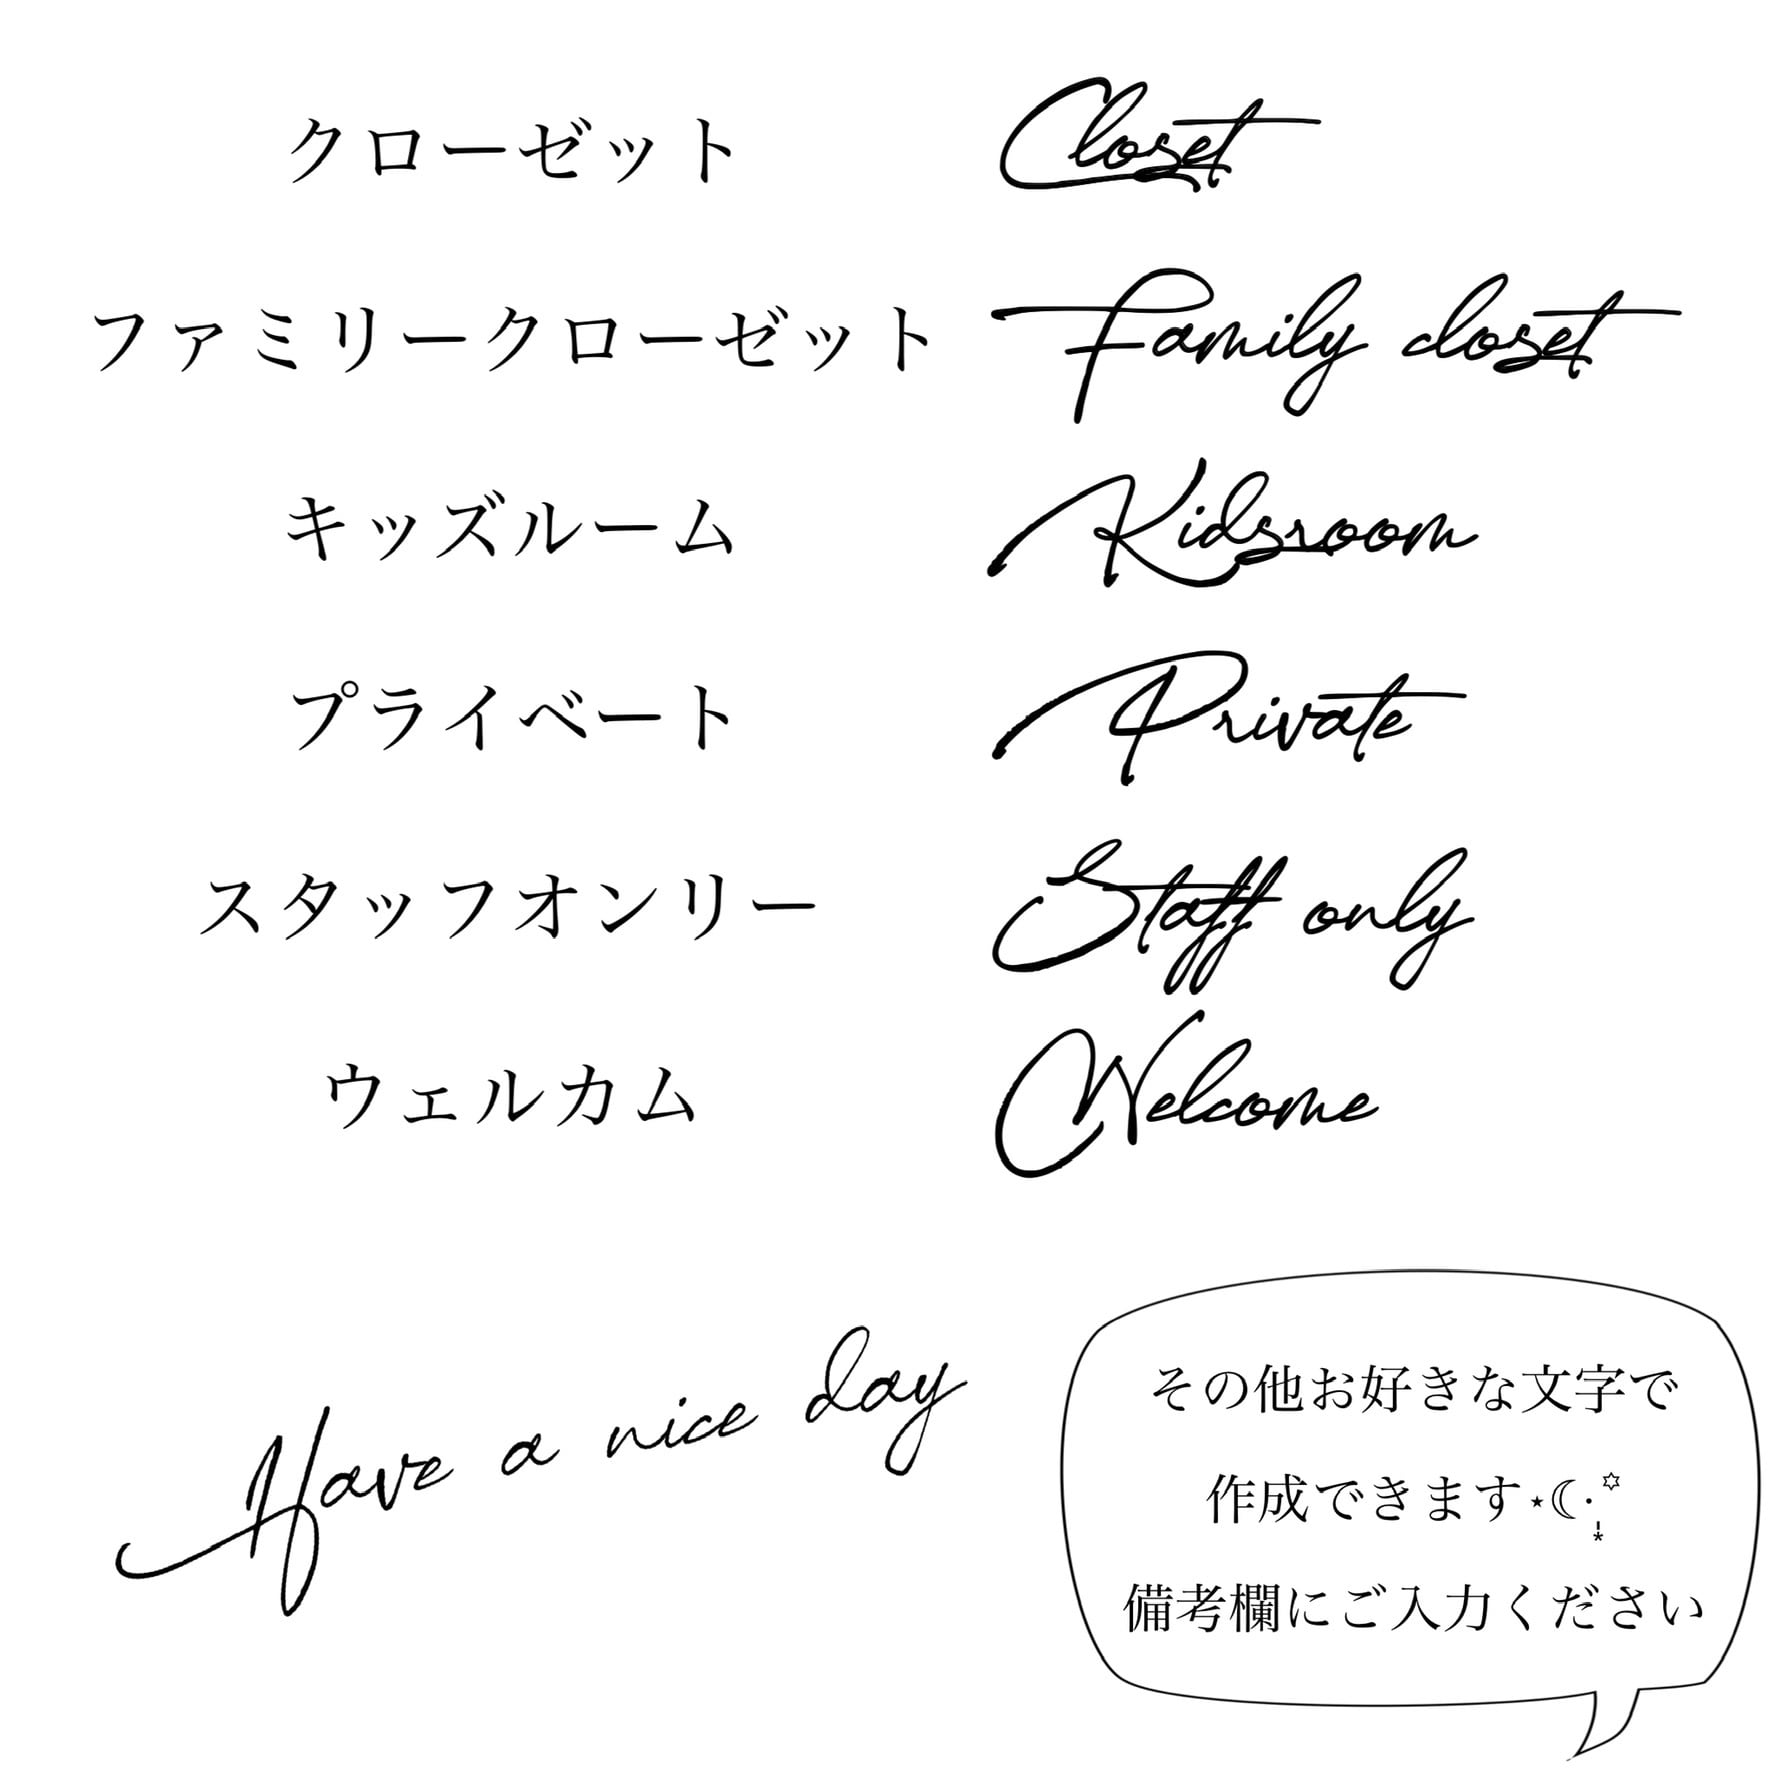 クローゼット Closet
ファミリークローゼット Family closet
キッズルーム Kidsroom
プライベート Private
スタッフオンリー Staff only
ウェルカム Welcome
Have a nice day
その他お好きな文字で
作成できます⋆☾·̩͙꙳
備考欄にご入力ください